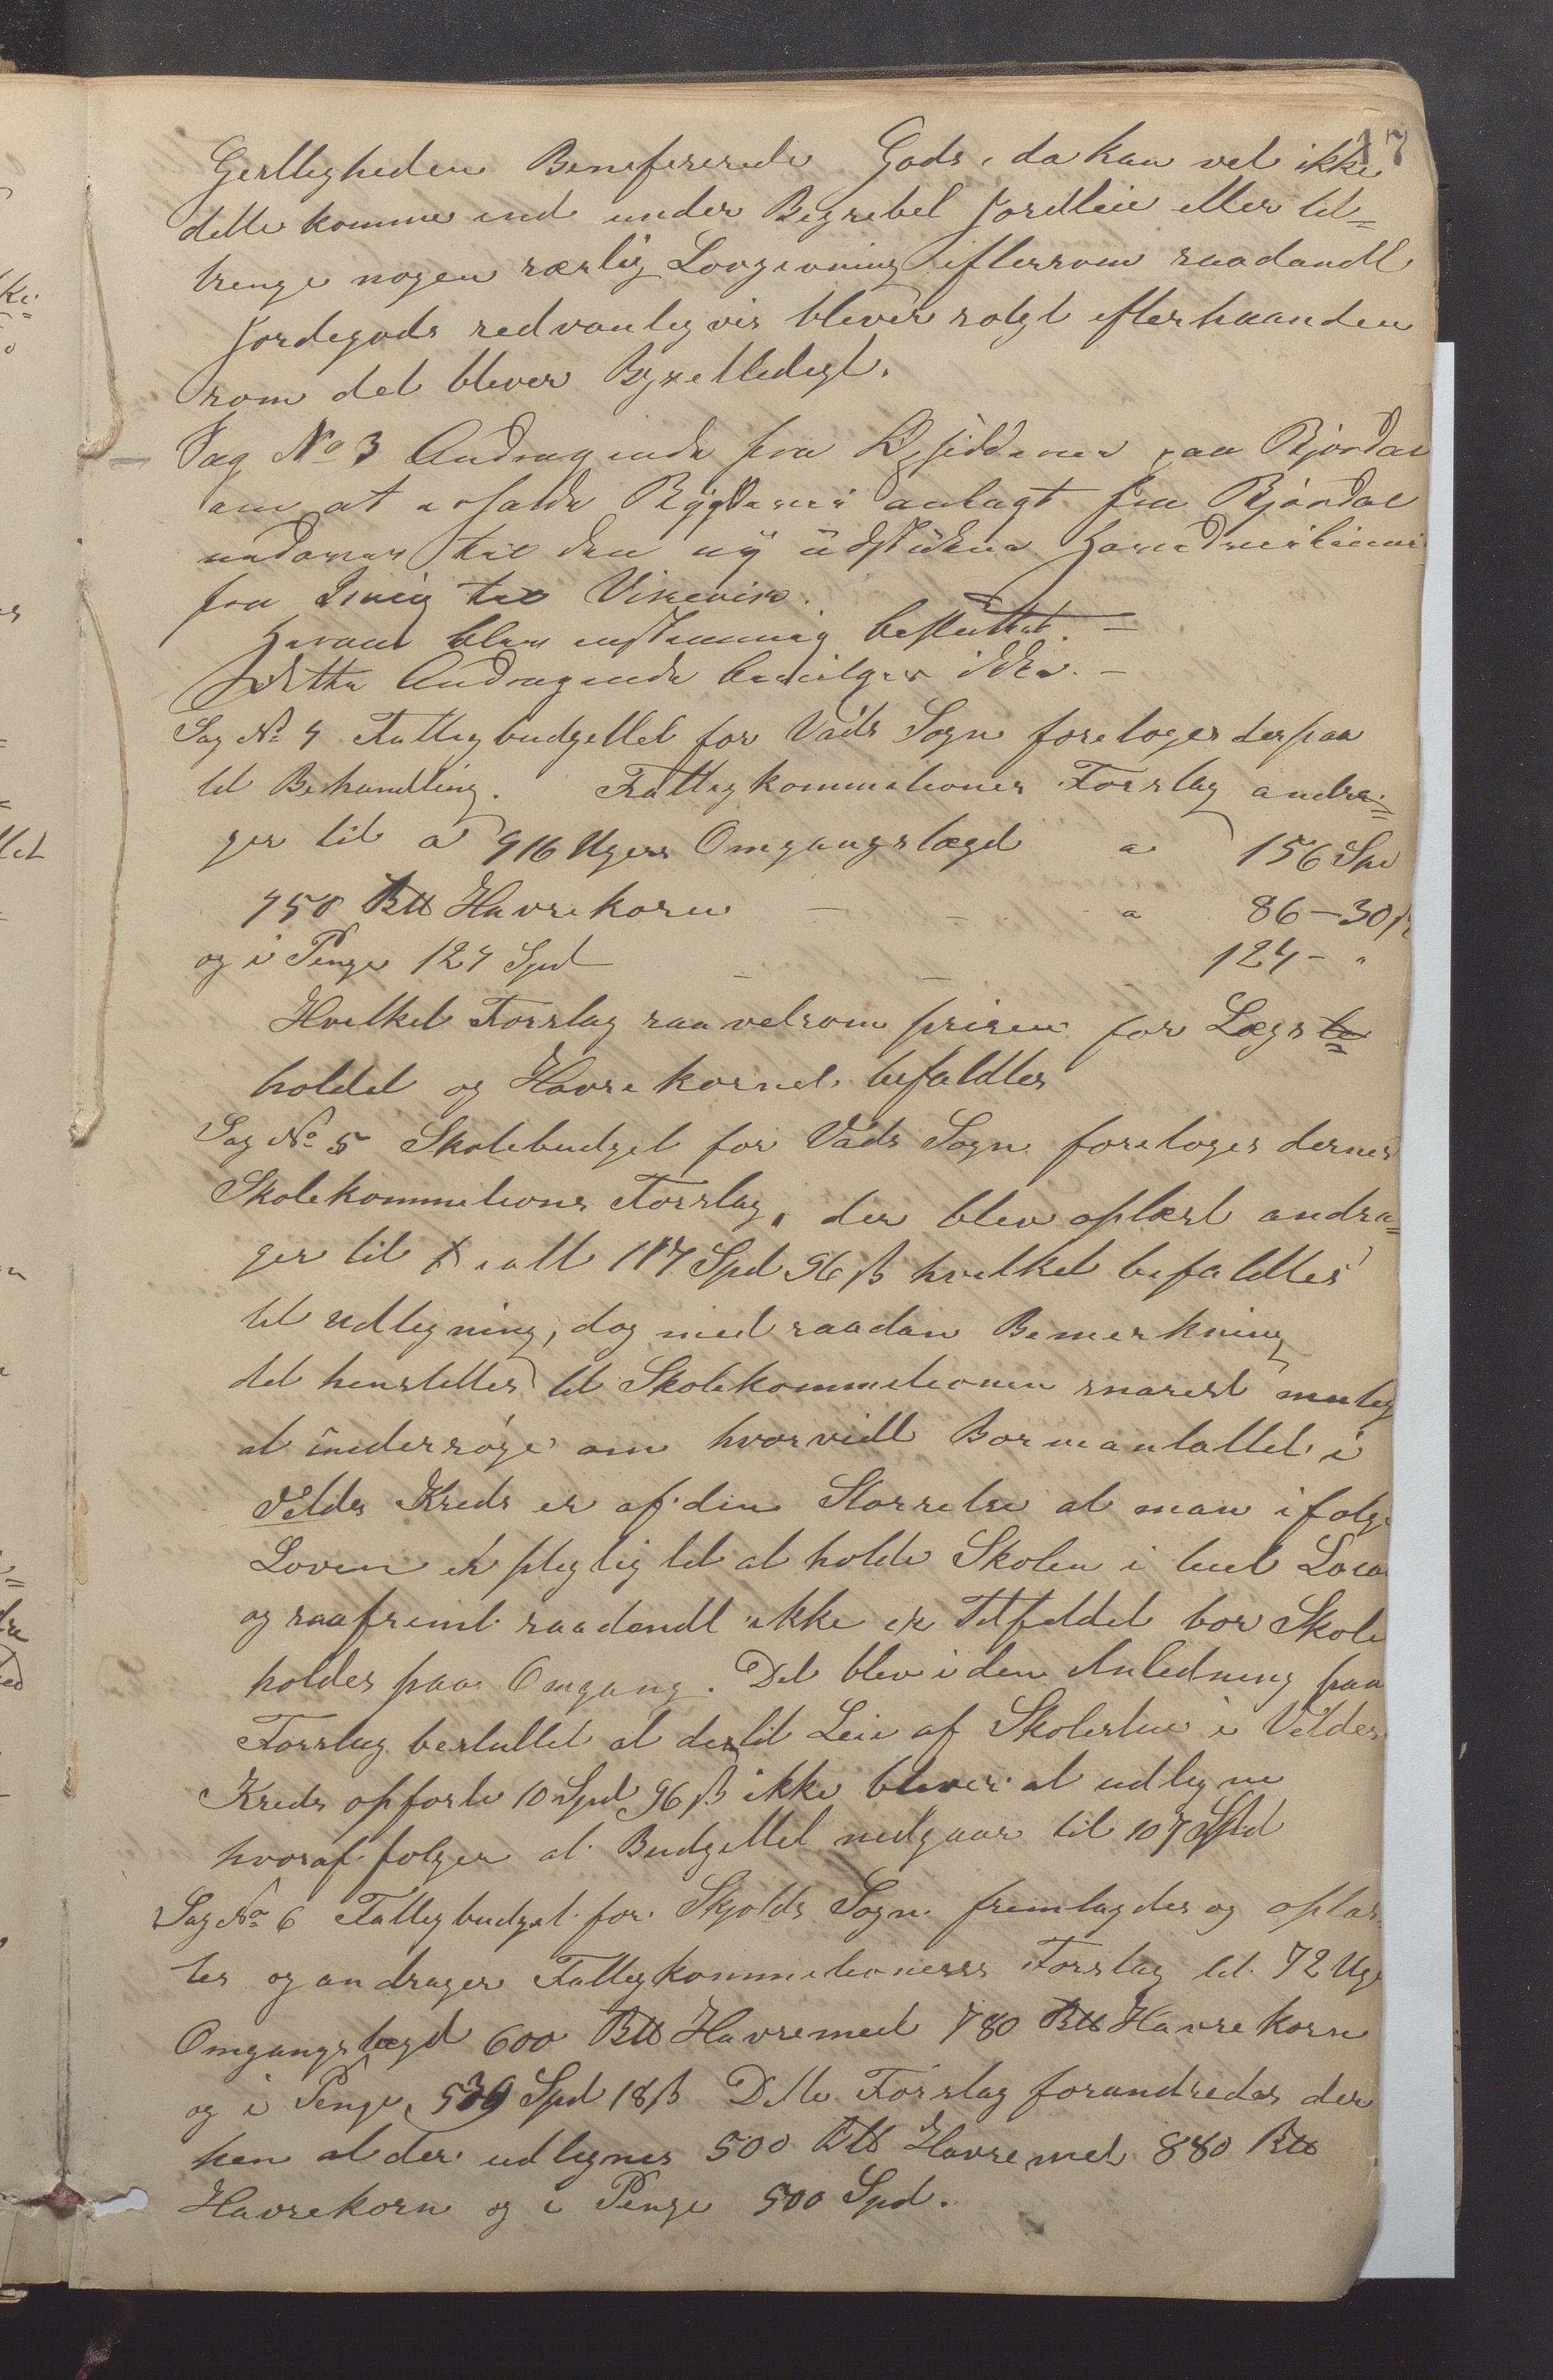 17
Gestligheden Benefiserede Gods, da kan vel ikke
dette komme ind under Begrebet Jordleie eller til=
trenge nogen særlig Lovgivning eftersom saadandt
Jordegods sedvanligvis bliver solgt efterhaanden
som det bliver Bygselledigt.
Sag No 3 Andragende fra Opsidderne paa Bjordal
om at erholde Bygdevei anlagt fra Bjordal
nedover til den ny udstukne Hovedveilinie
fra til Vikevik.
Herom blev enstemmig besluttet. —
Dette Andragende bevilges ikke. —
Sag No 4 Fattigbudgettet for Vads Sogn foretoges derpaa
til Behandling. Fattigkommitionens Forslag andra=
ger til a 416 Ugers Omgangslægd a 156 Spd
450 Btt Havrekorn — - a 86 — 30 ß
og i Penge 124 Spd - — - 124 - "
Hvilket Forslag saavelsom prisen for Lægs=
holdet og Havrekornet bifaldtes
Sag No 5 Skolebudget for Vads Sogn foretoges dernest
Skolekommitions Forslag, der blev oplæst andra=
ger til i alt 117 Spd 96 ß hvilket bifaldtes
til Udligning, dog med saadan Bemerkning
det henstilles til Skolekommitionen snarest mulig
at undersøge om hvorvidt Børneantallet i
Velde Kreds er af den Størrelse at man ifølge
Loven er pligtig til at holde Skolen i leiet Local
og saafremt saadandt ikke er Tilfeldet bør Skole
holdes paa Omgang. Det blev i den Anledning paa
Forslag besluttet at der til Leie af Skolestue i Velde
Kreds opførte 10 Spd 96 ß ikke bliver at udligne
hvoraf følger at Budgettet nedgaar til 107 Spd
Sag No 6 Fattigbudget for Skjolds Sogn fremlagdes og oplæs
tes og andrager Fattigkommitionens Forslag til 72 Uge
Omgangslægd 600 Btt Havremel 780 Btt Havrekorn
og i Penge 539 Spd 18 ß Dette Forslag forandredes der
hen at der udlignes 500 Btt Havremel 880 Btt
Havrekorn og i Penge 500 Spd.